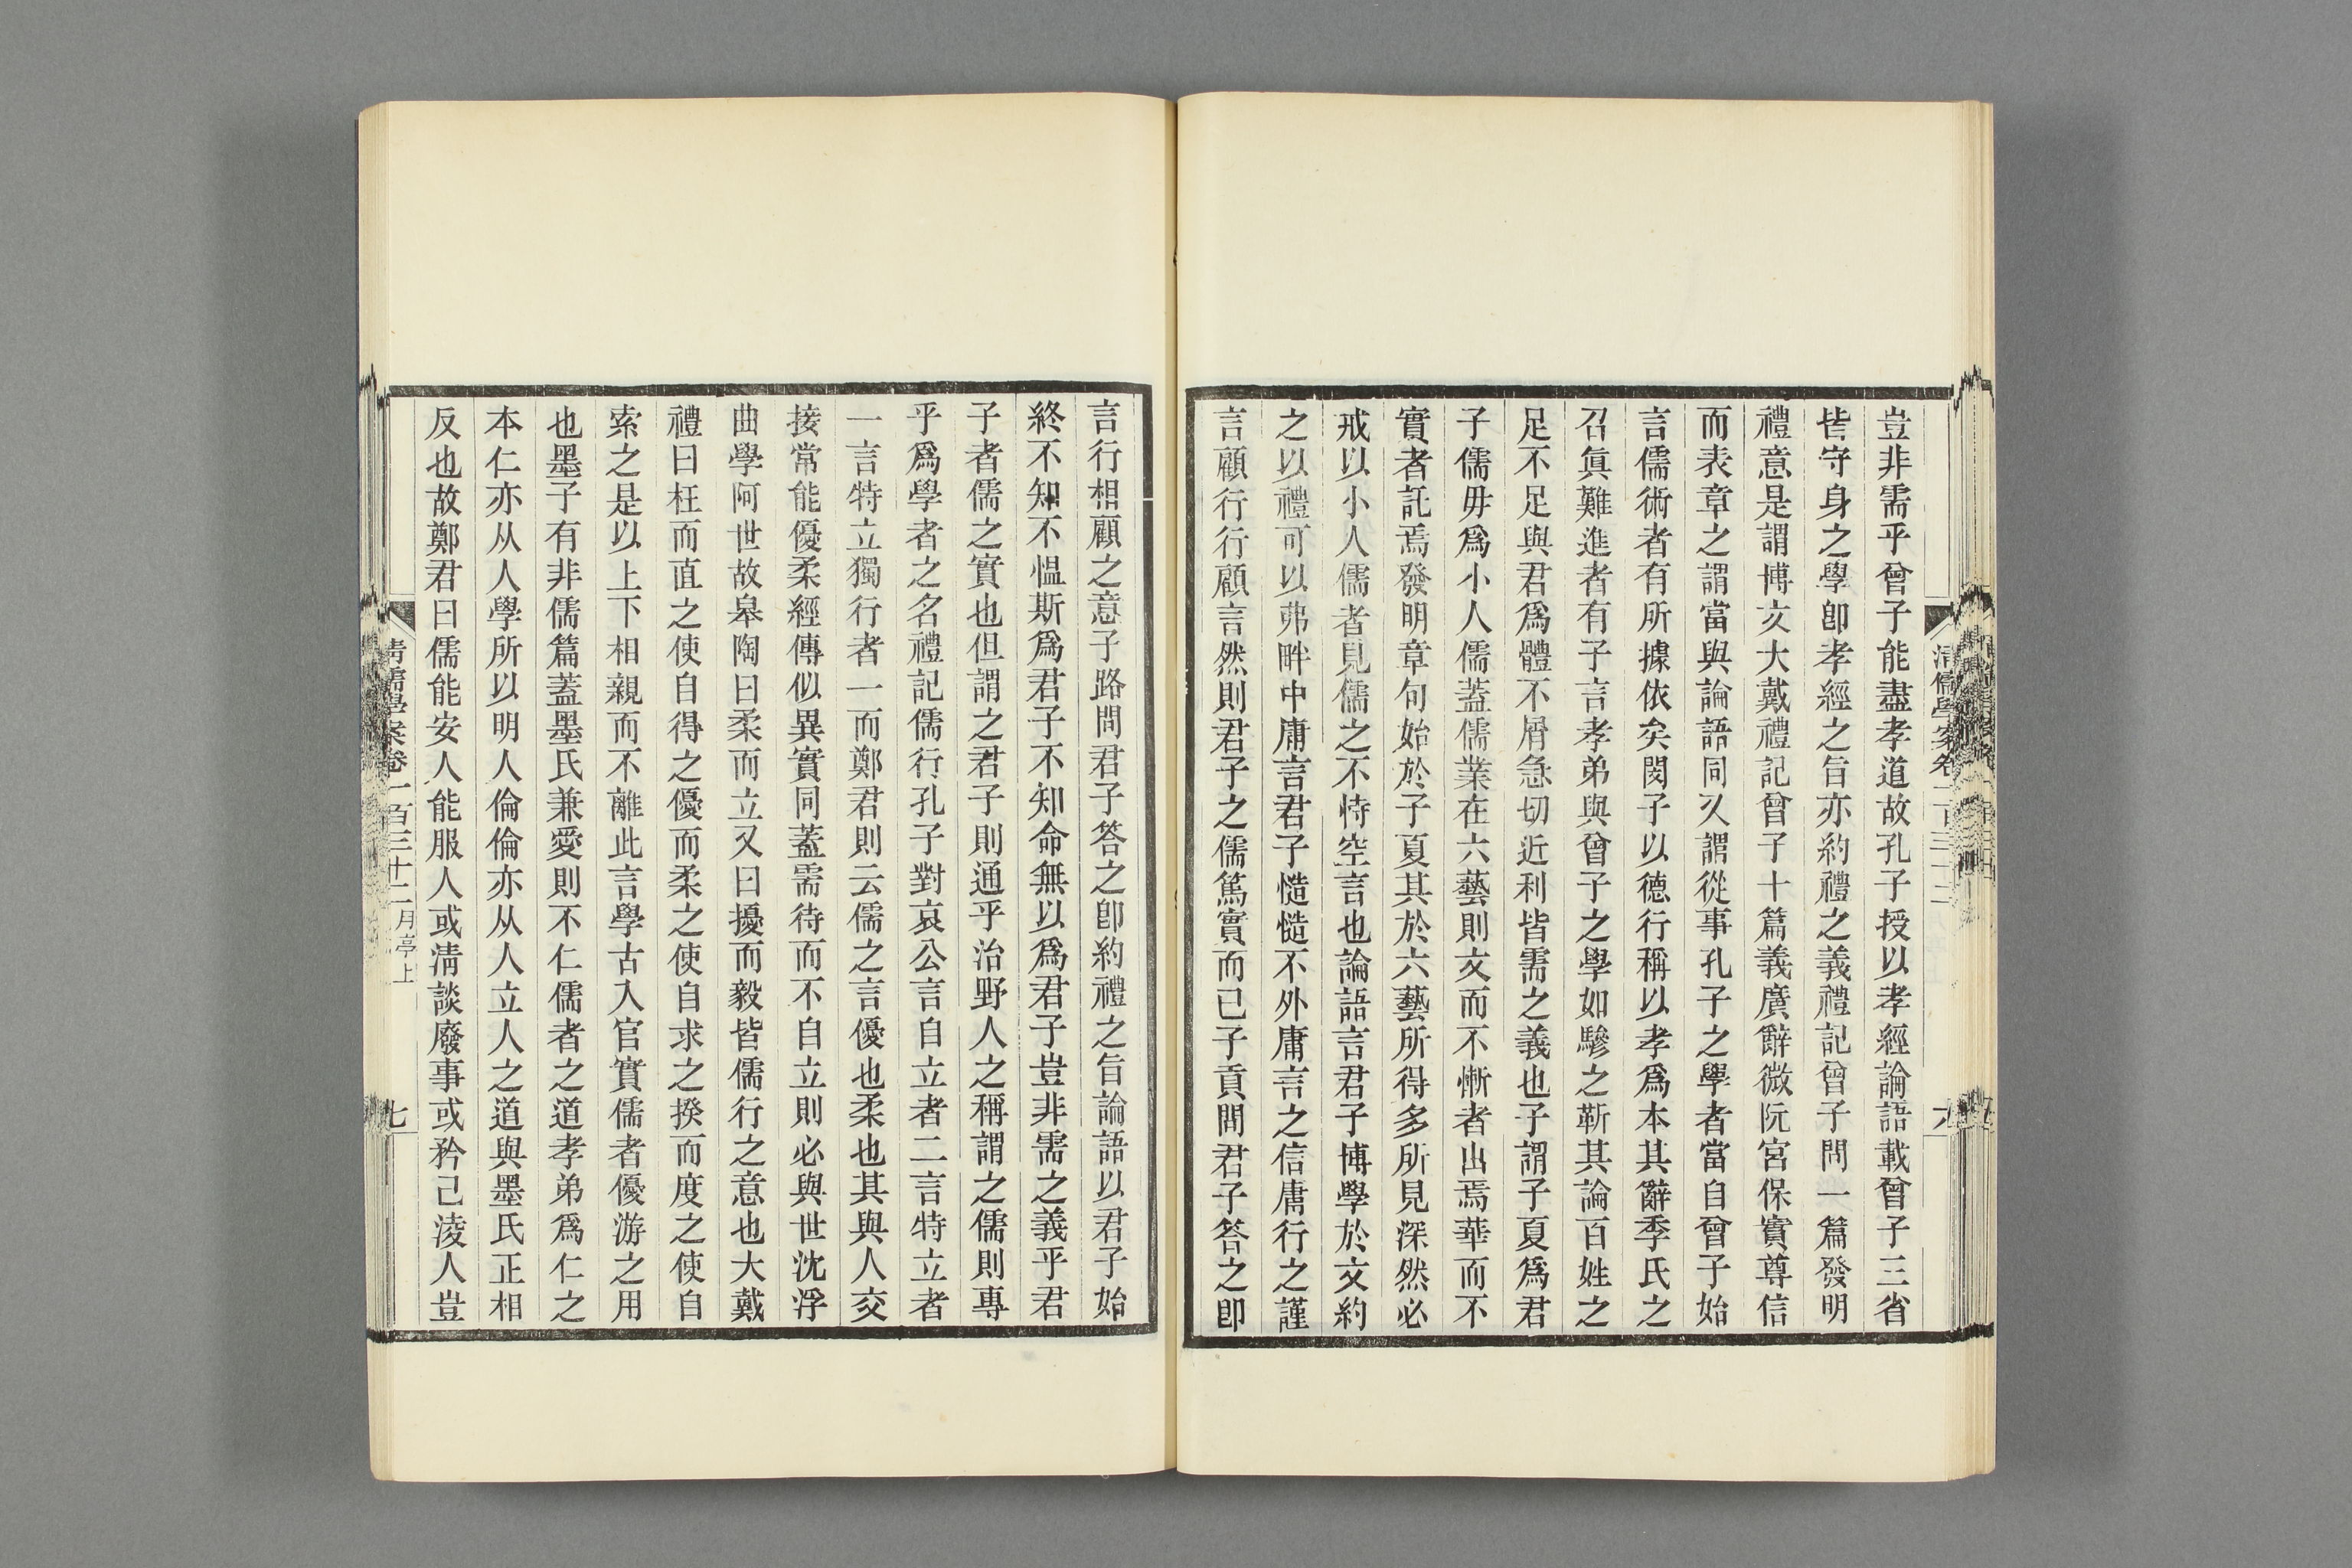 豈非需乎曾子能盡孝道故孔子授以孝經論語載曾子三省
皆守身之學卽孝經之旨亦約禮之義禮記曾子問一篇發明
禮意是謂博文大戴禮記曾子十篇義廣辭微阮宮保實尊信
而表章之謂當與論語同久謂從事孔子之學者當自曾子始
言儒術者有所據依矣閔子以德行稱以孝爲本其辭季氏之
召眞難進者有子言孝弟與曾子之學如驂之靳其論百姓之
足不足與君爲體不屑急切近利皆需之義也子謂子夏爲君
子儒毋爲小人儒蓋儒業在六藝則文而不慚者出焉華而不
實者託焉發明章句始於子夏其於六藝所得多所見深然必
戒以小人儒者見儒之不恃空言也論語言君子博學於文約
之以禮可以弗畔中庸言君子慥慥不外庸言之信庸行之謹
言顧行行顧言然則君子之儒篤實而已子貢問君子答之卽
清儒學案卷一百三十二
六
言行相顧之意子路問君子答之卽約禮之旨論語以君子始
終不知不慍斯爲君子不知命無以爲君子豈非需之義乎君
子者儒之實也但謂之君子則通乎治野人之稱謂之儒則專
乎爲學者之名禮記儒行孔子對哀公言自立者二言特立者
一言特立獨行者一而鄭君則云儒之言優也柔也其與人交
接常能優柔經傳似異實同蓋需待而不自立則必與世沈浮
曲學阿世故皋陶曰柔而立又曰擾而毅皆儒行之意也大戴
禮曰枉而直之使自得之優而柔之使自求之揆而度之使自
索之是以上下相親而不離此言學古入官實儒者優游之用
也墨子有非儒篇蓋墨氏兼愛則不仁儒者之道孝弟爲仁之
本仁亦从人學所以明人倫倫亦从人立人之道與墨氏正相
反也故鄭君曰儒能安人能服人或淸談廢事或矜己淩人豈
清儒學案卷一百三十二 月亭上
七